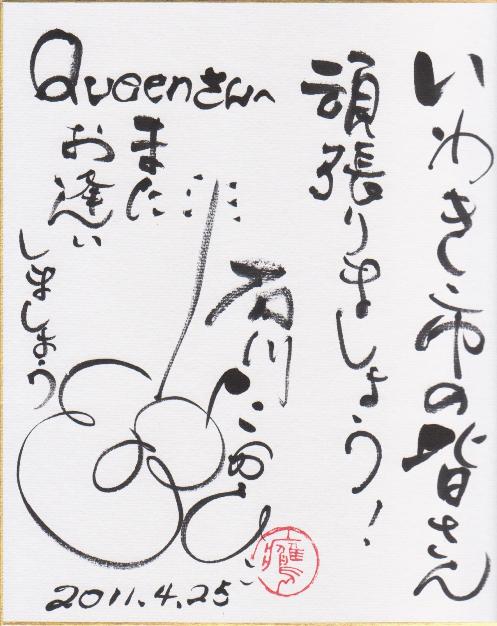 いわき市の皆さん
頑張りましょう!
Queenさんへ
また
お逢い
しましょう
石川
2011.4.25